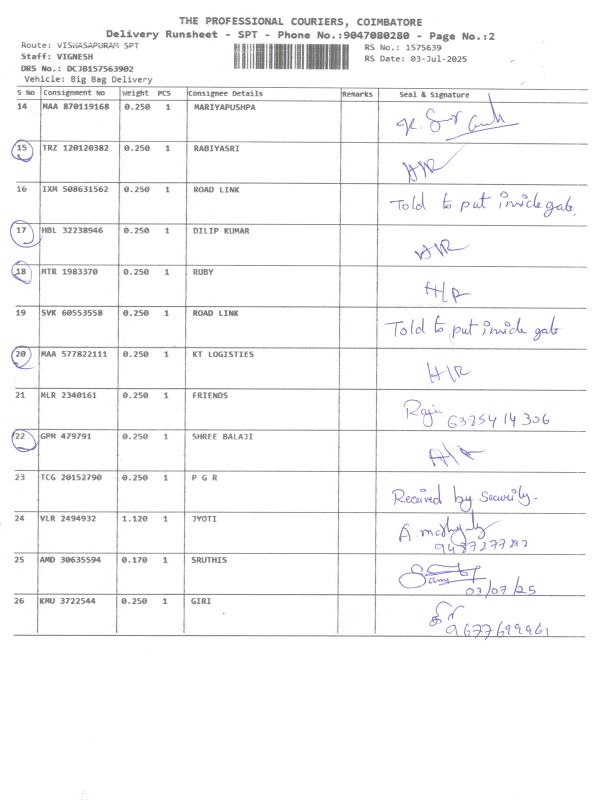 THE PROFESSIONAL COURIERS, COIMBATORE
Delivery Runsheet - SPT - Phone No.:9047080280 - Page No.:2
Route: VISHASAPURAM SPT
Staff: VIGNESH
DRS No.: DCJB157563902
Vehicle: Big Bag Delivery
RS No.: 1575639
RS Date: 03-Jul-2025
S No Consignment No Weight PCS Consignee Details Remarks Seal & Signature
14 MAA 870119168 0.250 1 MARIYAPUSHPA
15 TRZ 120120382 0.250 1 RABIYASRI H/R
16 IXM 508631562 0.250 1 ROAD LINK Told to put inside gate
17 HBL 32238946 0.250 1 DILIP KUMAR H/R
18 MTR 1983370 0.250 1 RUBY H/R
19 SVK 60553558 0.250 1 ROAD LINK Told to put inside gate
20 MAA 577822111 0.250 1 KT LOGISTIES H/R
21 MLR 2340161 0.250 1 FRIENDS Raju 6385414306
22 GPM 479791 0.250 1 SHREE BALAJI H/R
23 TCG 20152790 0.250 1 P G R Received by Security-
24 VLR 2494932 1.120 1 JYOTI
25 AMD 30635594 0.170 1 SRUTHIS 03/07/25
26 KMU 3722544 0.250 1 GIRI 9677699961